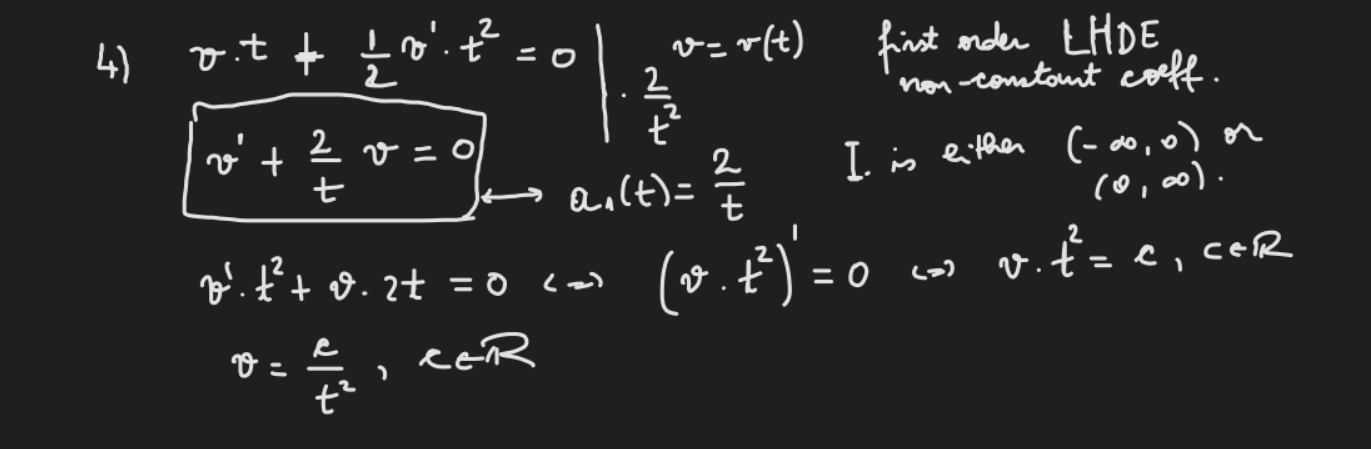 4) v·t + 1/2 v'·t² = 0 | · 2/t² v = v(t) first order LHDE
non-constant coeff.
v' + 2/t v = 0 ⟷ a₁(t) = 2/t I. is either (-∞, 0) or
(0, ∞).
v'·t² + v·2t = 0 <=> (v·t²)' = 0 <=> v·t² = c, c∈ℝ
v = c/t², c∈ℝ